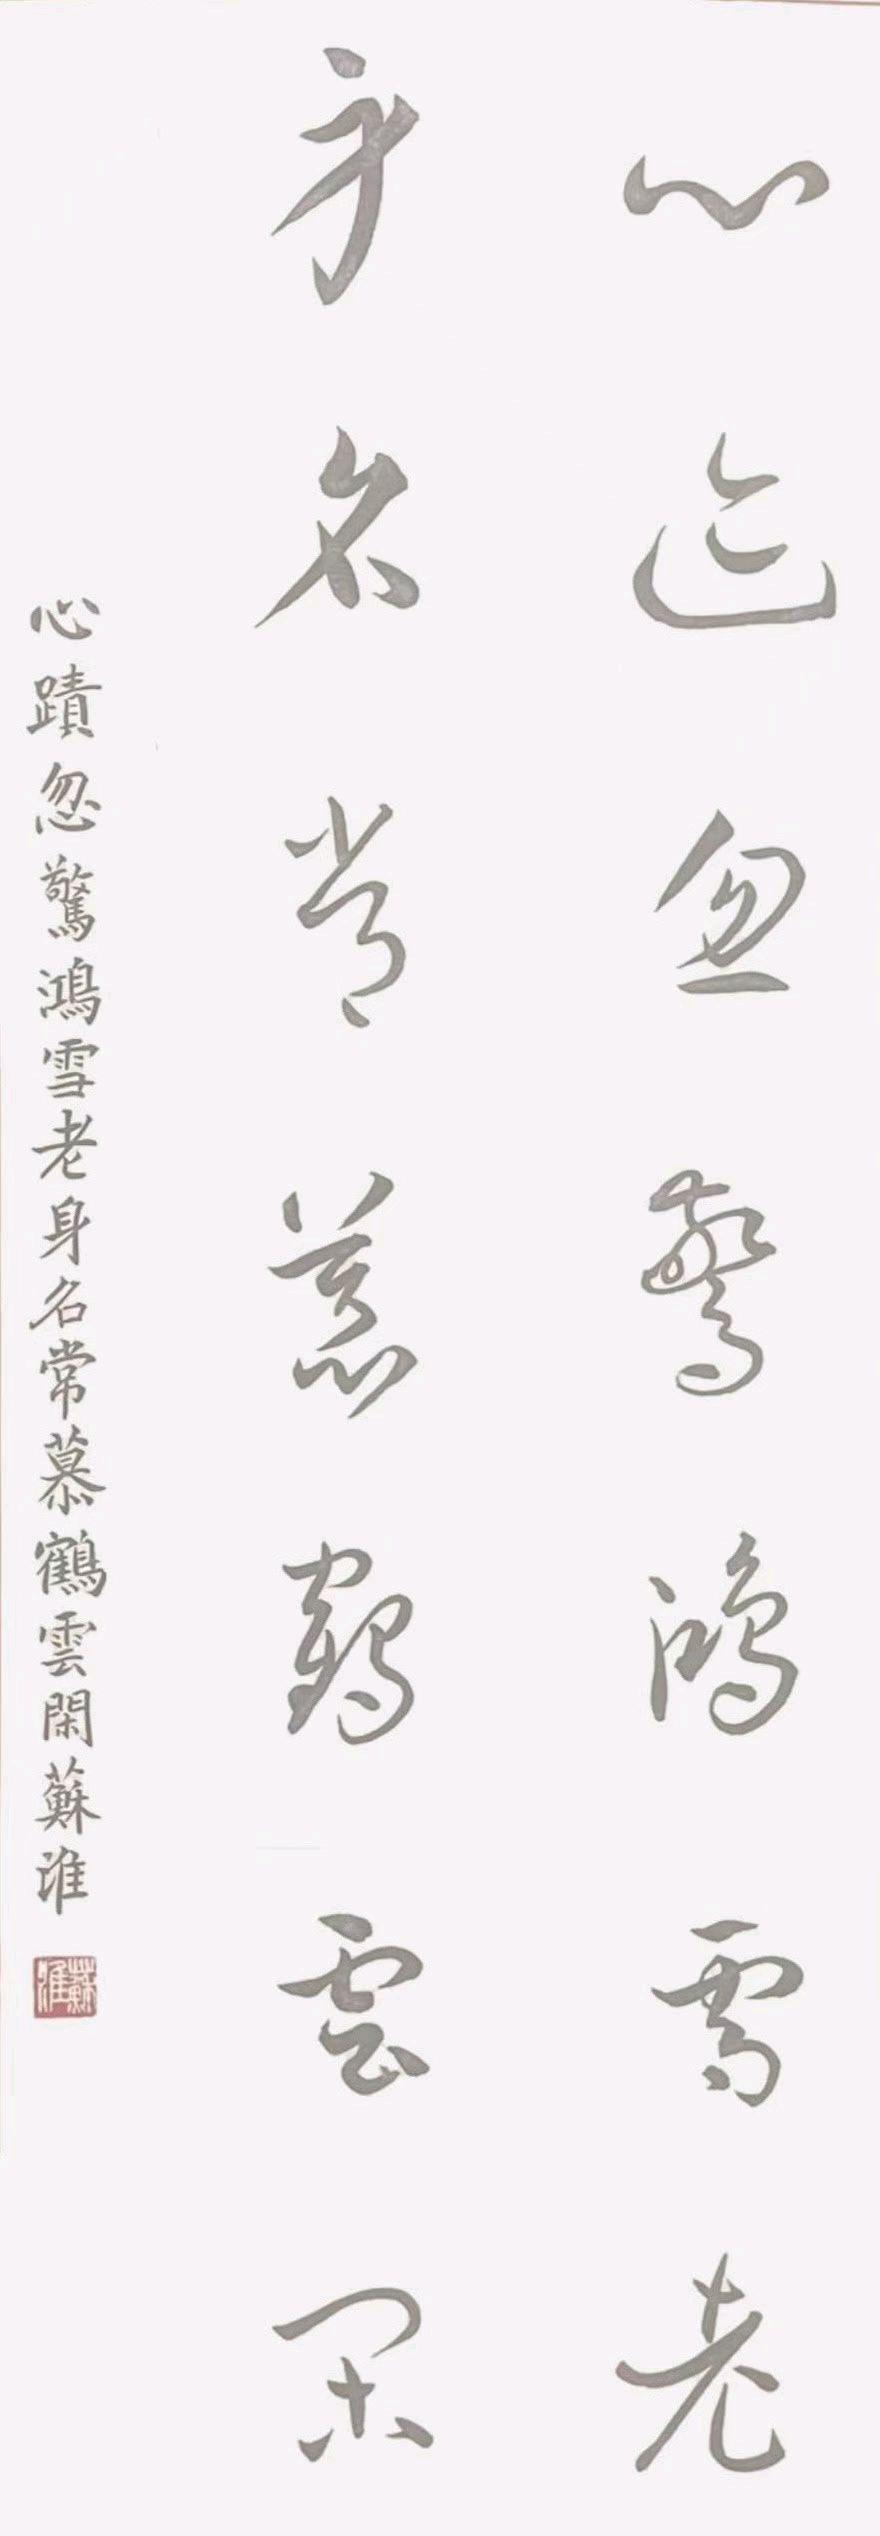 心迹忽驚鴻雪老
身名常慕鶴雲閑
心蹟忽驚鴻雪老身名常慕鶴雲閑蘇淮
蘇淮